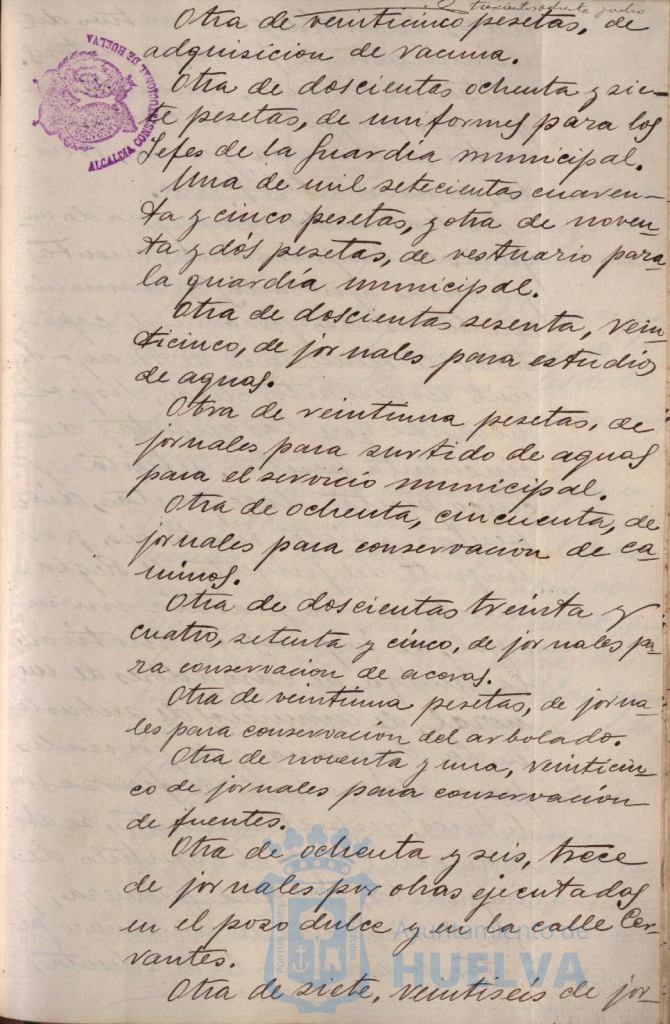 trescientos ochenta y ocho
Otra de veinticinco pesetas, de
adquisicion de vacuna.
Otra de doscientas ochenta y sie-
te pesetas, de uniformes para los
Jefes de la Guardia municipal.
Una de mil setecientas cuaren-
ta y cinco pesetas, y otra de noven-
ta y dós pesetas, de vestuario para
la guardia municipal.
Otra de doscientas sesenta, vein-
ticinco, de jornales para estudios
de aguas.
Otra de veintiuna pesetas, de
jornales para surtido de aguas
para el servicio municipal.
Otra de ochenta, cincuenta, de
jornales para conservación de ca-
minos.
Otra de doscientas treinta y
cuatro, setenta y cinco, de jornales pa-
ra conservacion de aceras.
Otra de veintiuna pesetas, de jorna-
les para conservación del arbolado.
Otra de noventa y una, veinticin-
co de jornales para conservación
de fuentes.
Otra de ochenta y seis, trece
de jornales por obras ejecutadas
en el pozo dulce y en la calle Cer-
vantes.
Otra de siete, veintiseis de jor-
ALCALDIA CONSTITUCIONAL DE HUELVA
Ayuntamiento de
HUELVA